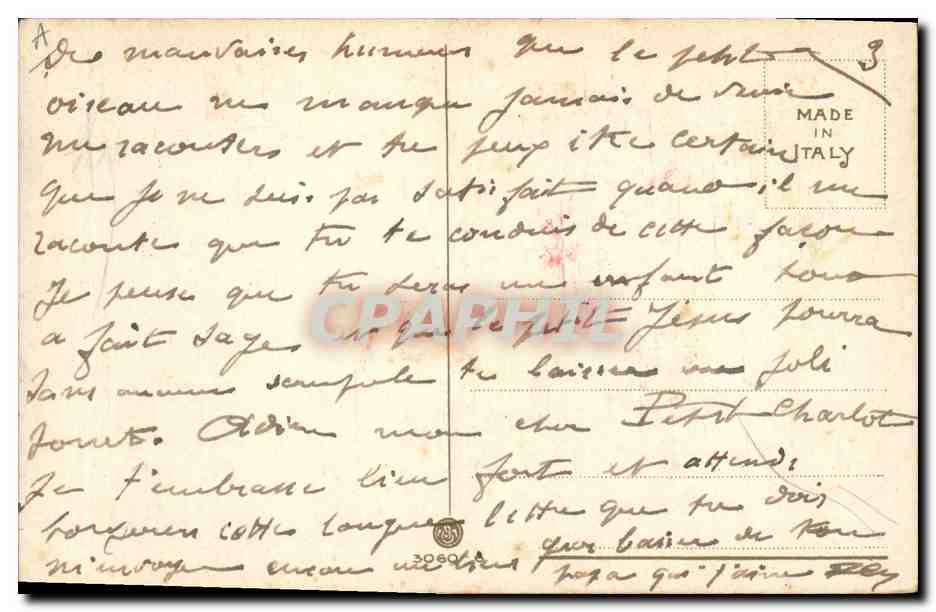 A
3
de mauvaises humeurs que le petit
oiseau ne manque jamais de venir
me racouters et tu peux être certain
que je ne suis pas satisfait quand il me
raconte que tu te conduis de cette façon
Je pense que tu seras un enfant tout
a fait sage et que le petit Jésus pourra
sans aucun scrupule te laisser un joli
jouet. Adieu mon cher Petit Charlot
Je t'embrasse bien fort et attends
toujours cette longue lettre que tu dois
m'envoyer encore un bien gros baiser de ton
papa qui t'aime
MADE
IN
ITALY
CPAPHIL